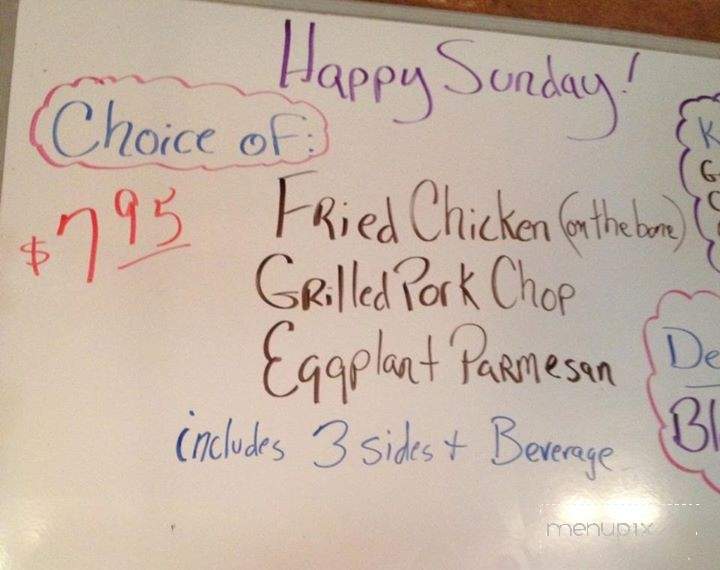 Happy Sunday!
Choice of:
$7.95
Fried Chicken (on the bone)
Grilled Pork Chop
Eggplant Parmesan
includes 3 sides + Beverage
menupix